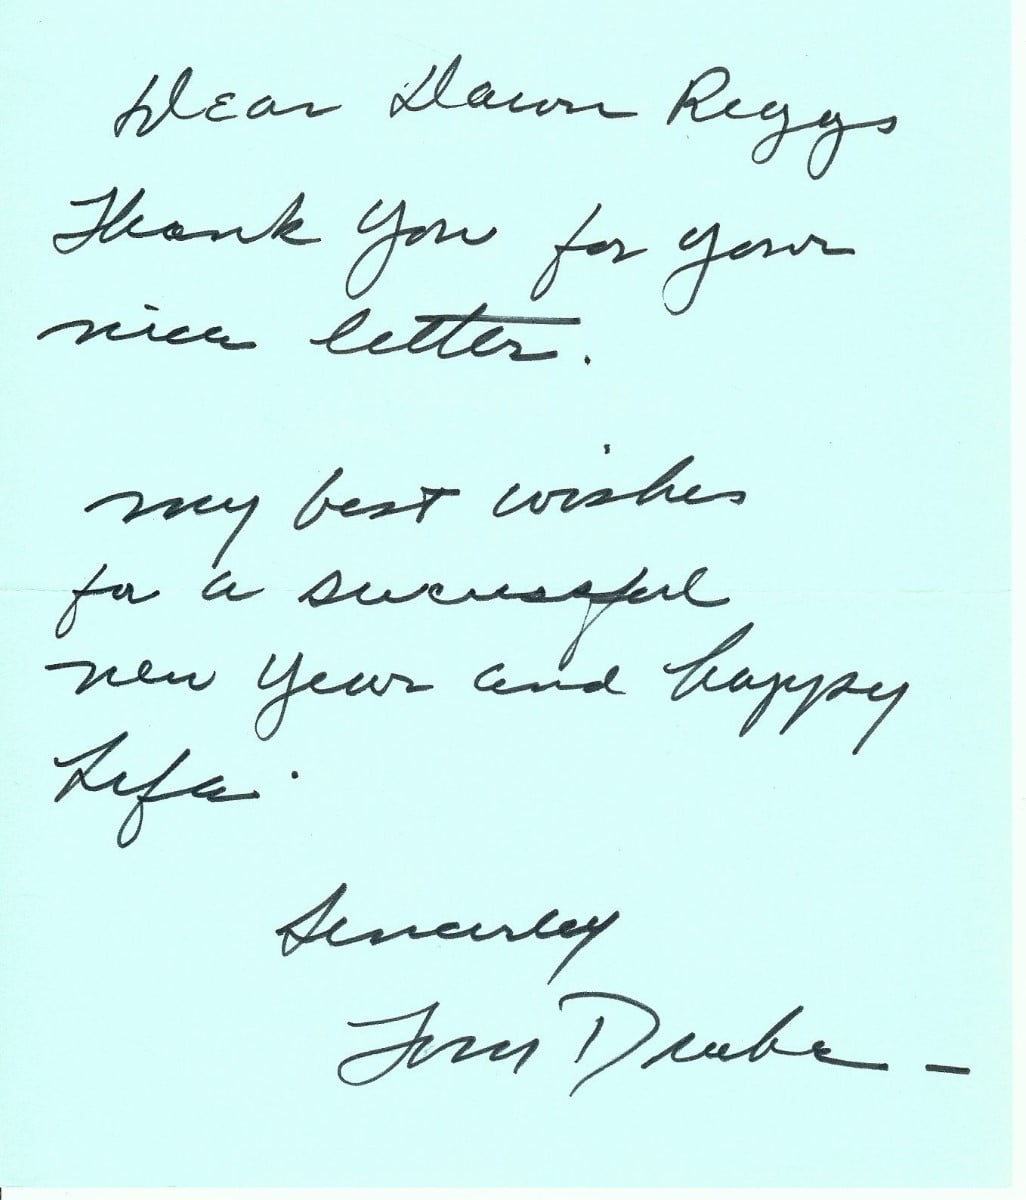 Dear Dawn Reggs
Thank you for your
nice letter.
my best wishes
for a successful
new year and happy
Life.
Sincerley
Tom Drake -